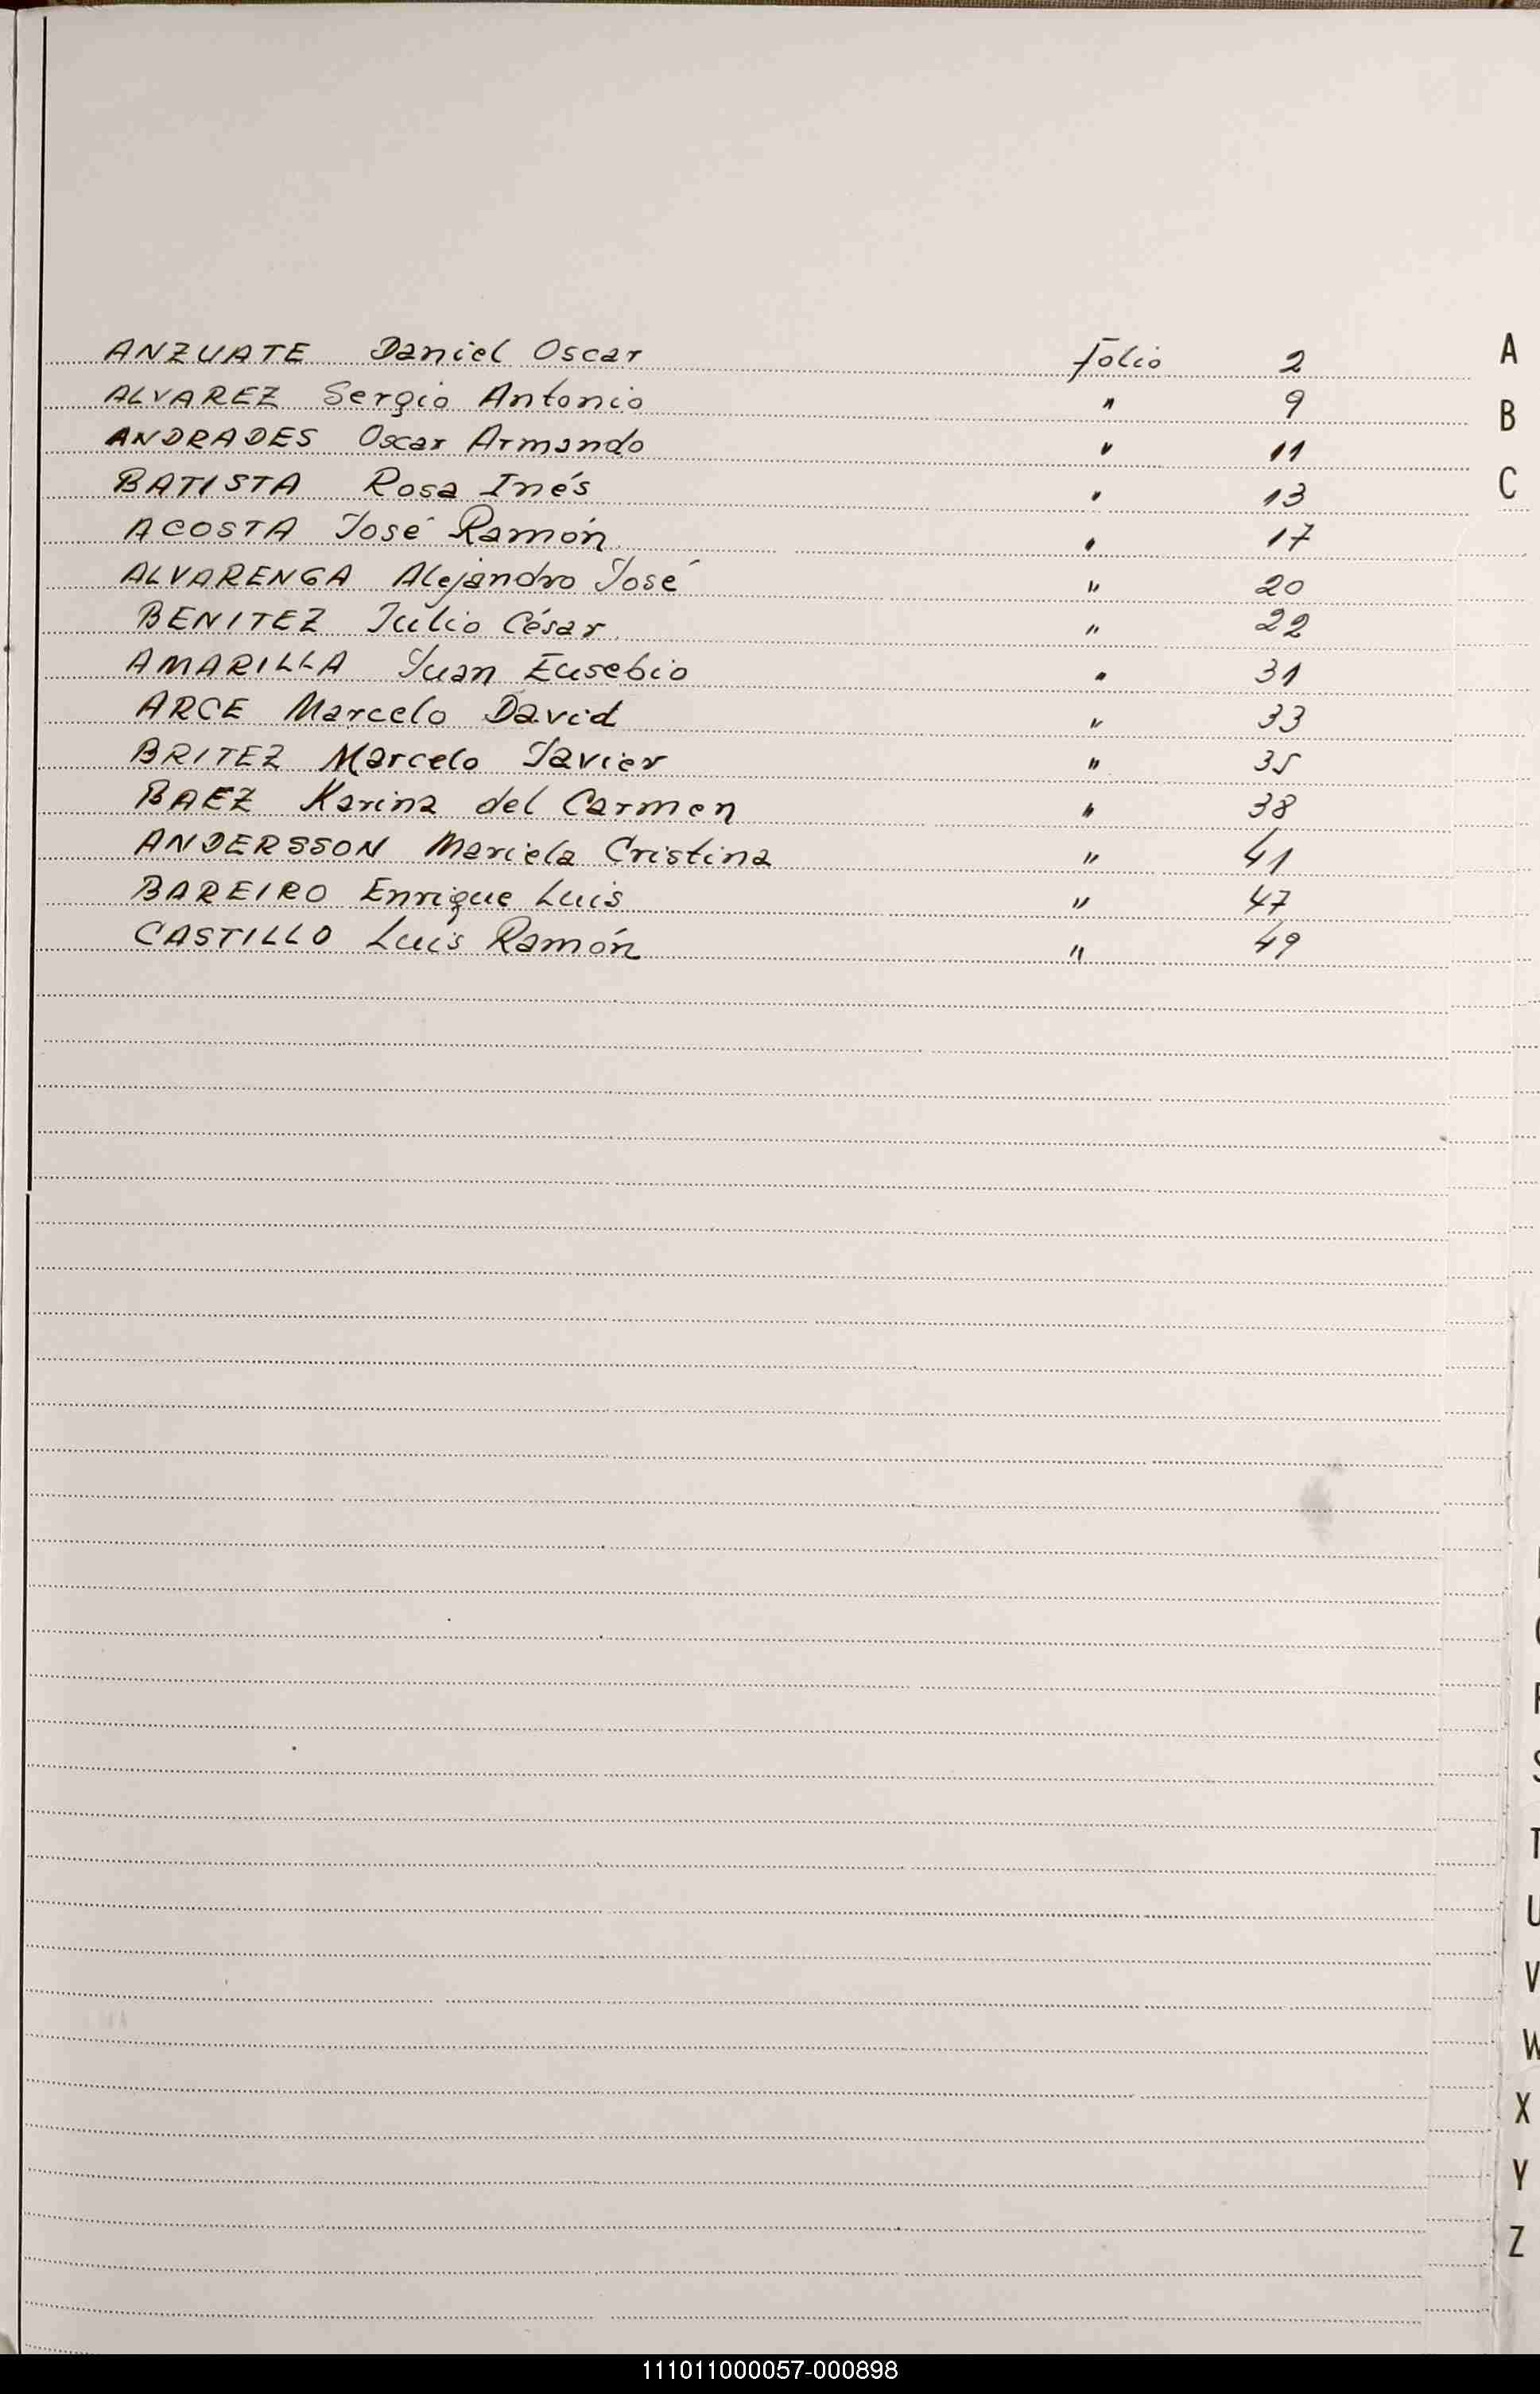 ANZUATE Daniel Oscar Folio 2
ALVAREZ Sergio Antonio " 9
ANDRADES Oscar Armando " 11
BATISTA Rosa Inés " 13
ACOSTA José Ramón " 17
ALVARENGA Alejandro José " 20
BENITEZ Julio César " 22
AMARILLA Juan Eusebio " 31
ARCE Marcelo David " 33
BRITEZ Marcelo Javier " 35
BAEZ Karina del Carmen " 38
ANDERSSON Mariela Cristina " 41
BAREIRO Enrique Luis " 47
CASTILLO Luis Ramón " 49
A
B
C
S
T
U
V
W
X
Y
Z
111011000057-000898